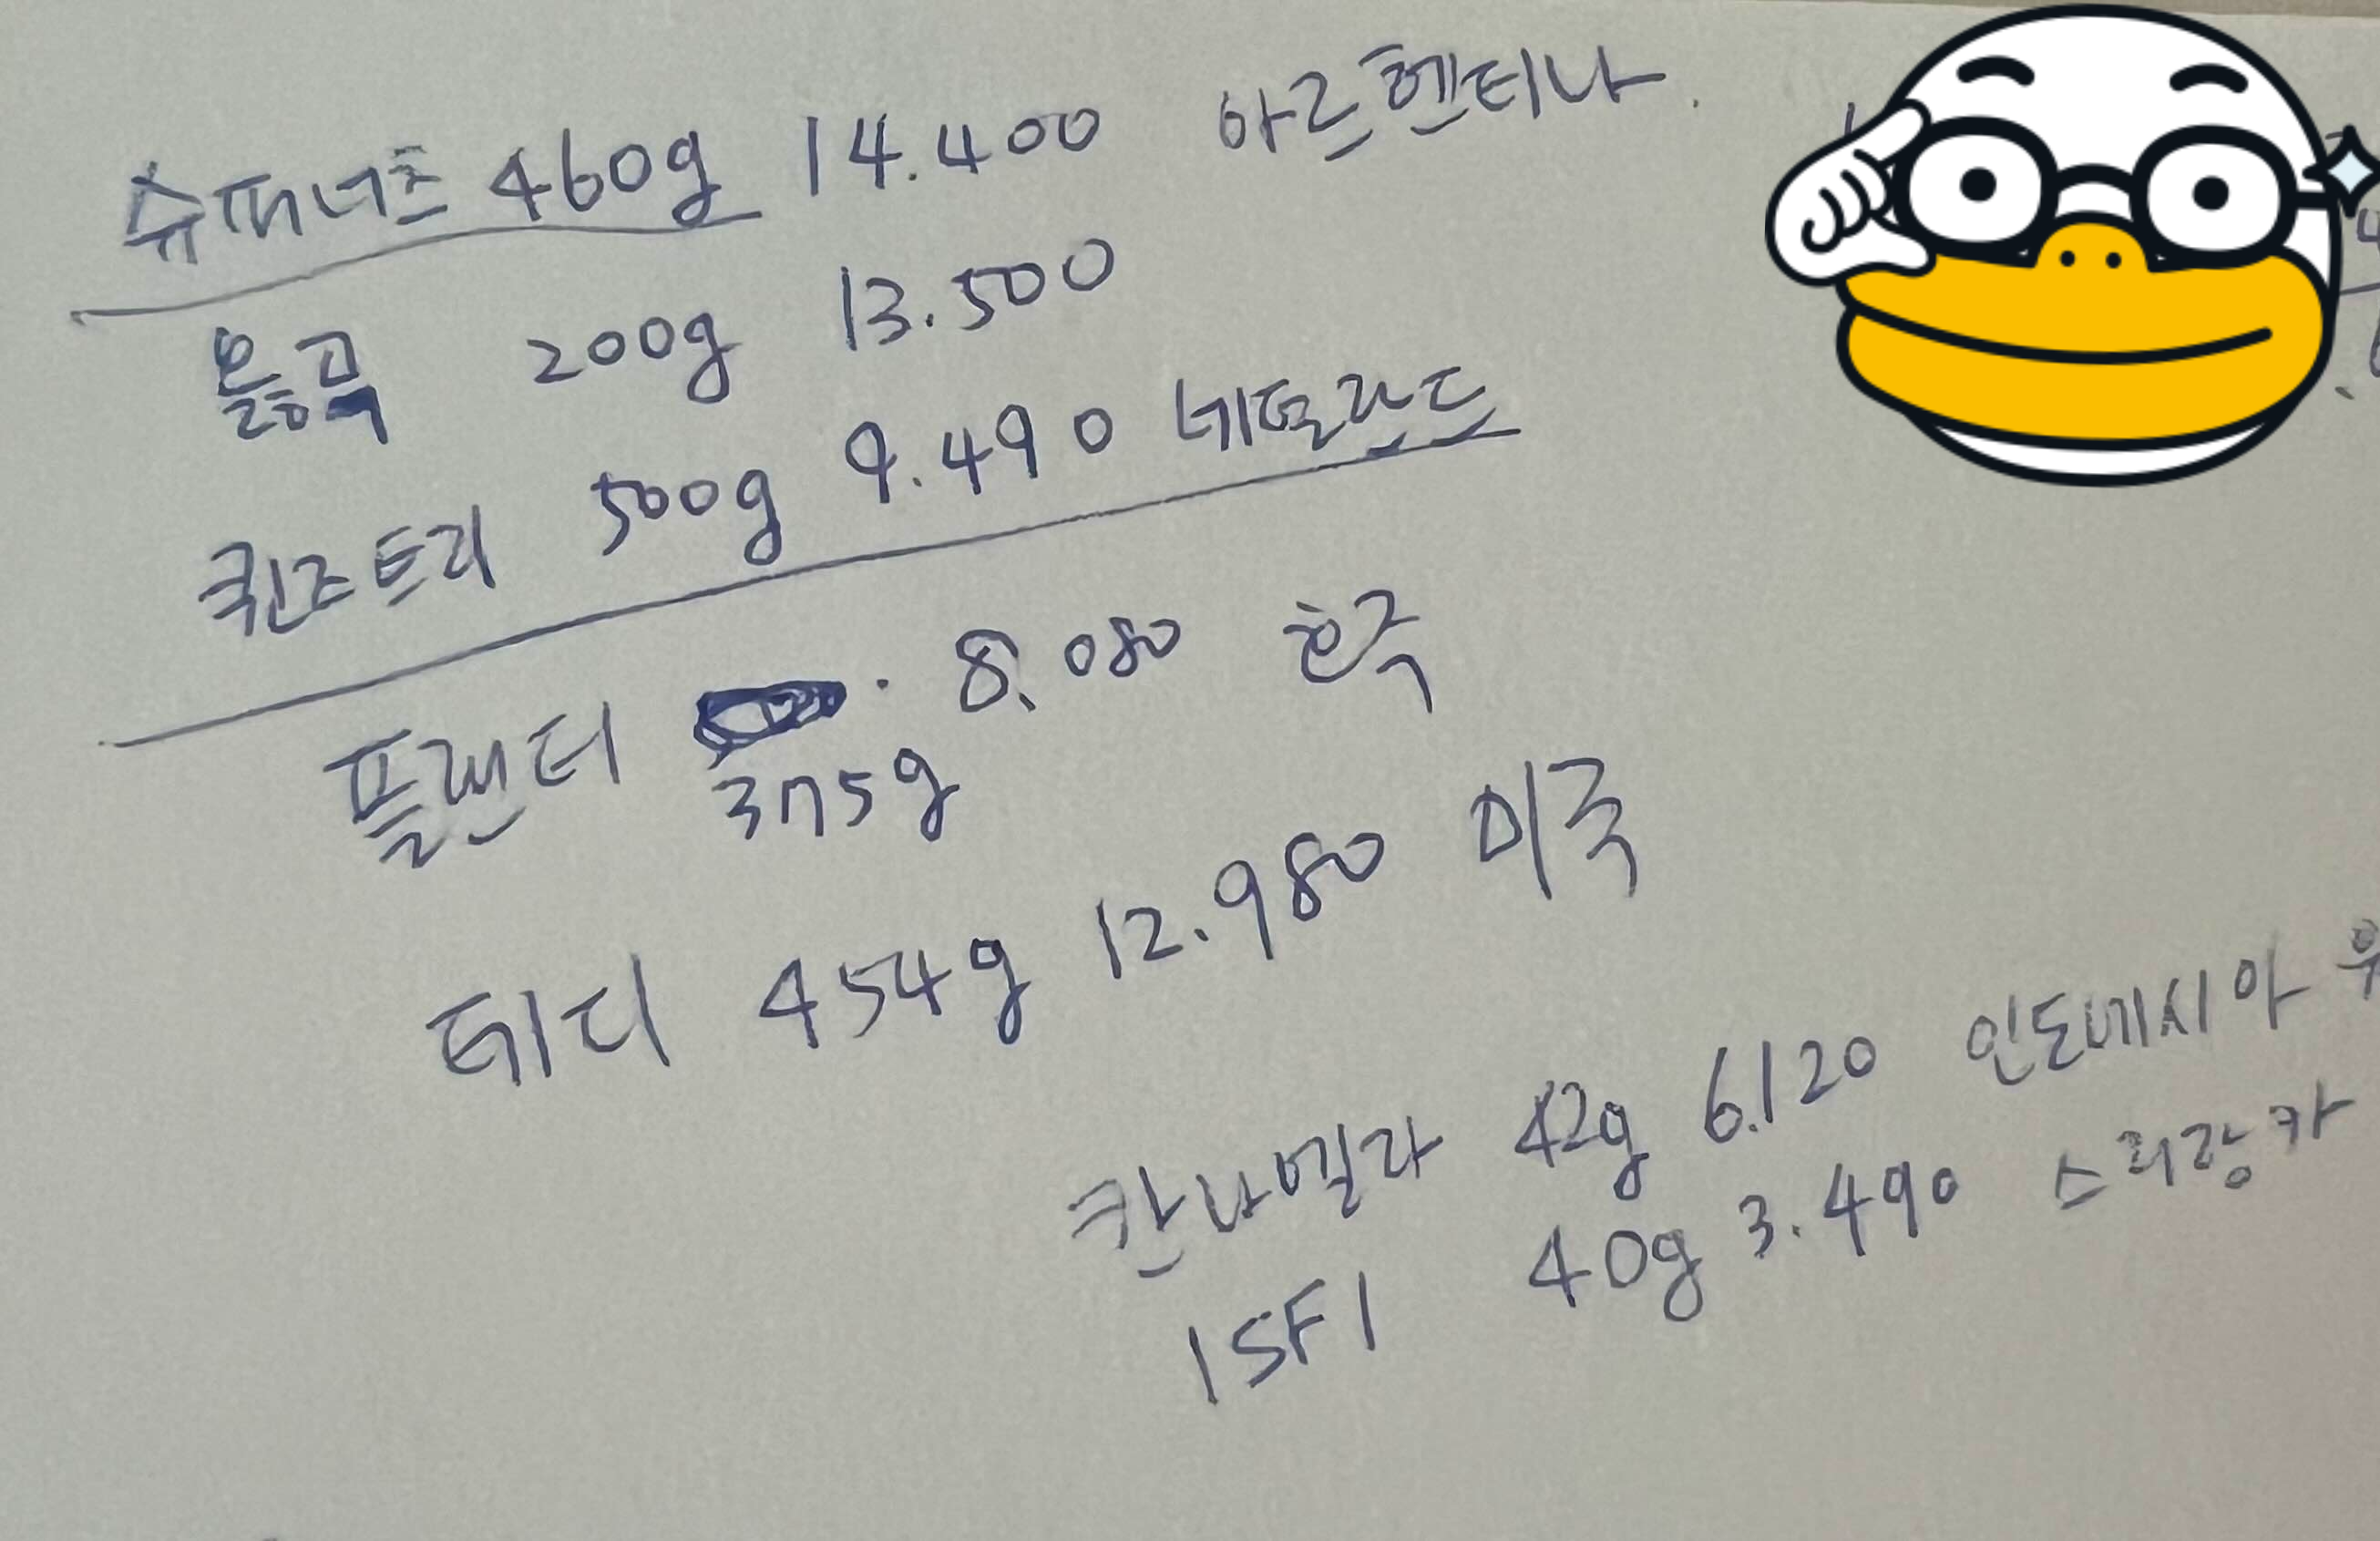 슈퍼너츠 460g 14.400 아르헨티나.
200g 13.500
퀸즈트리 500g 9.490 네덜란드
플랜터 8.080 호주
375g
테디 454g 12.980 미국
칸나멜라 42g 6.120 인도네시아
ISFI 40g 3.490 스리랑카